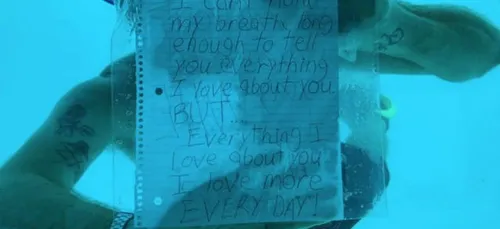 I can't hold
my breath long
enough to tell
you everything
I love about you
BUT...
Everything I
love about you
I love more
EVERY DAY!